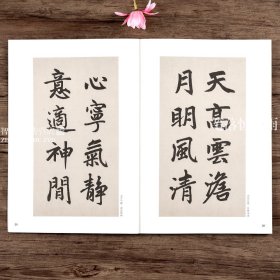 天高雲澹
月明風清
心寧氣靜
意適神閒